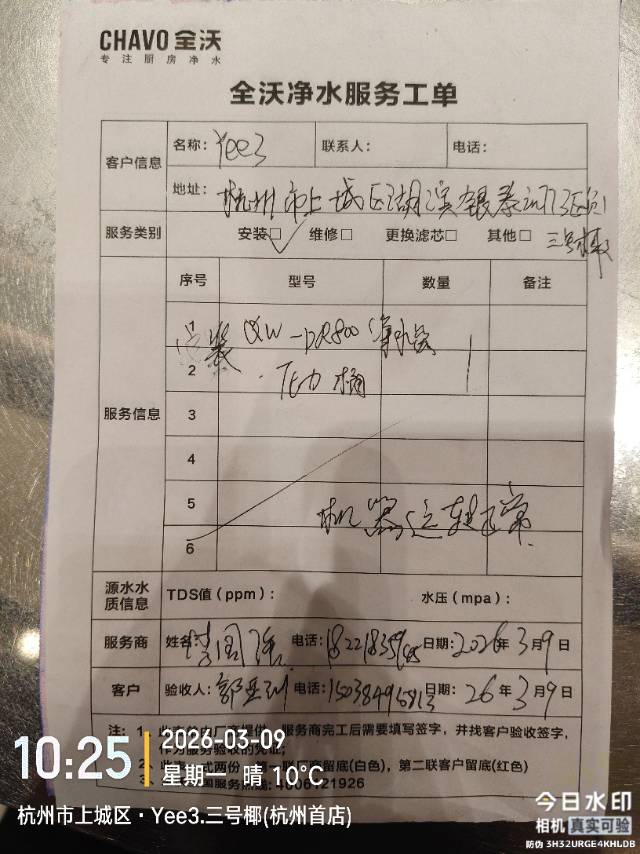 CHAVO 全沃
专注厨房净水
全沃净水服务工单
客户信息 名称: Yee3 联系人: 电话:
地址: 杭州市上城区湖滨银泰in77
三号椰
服务类别 安装☑ 维修□ 更换滤芯□ 其他□
服务信息 序号 型号 数量 备注
安装 QW-DR800 净水器
2 压力桶 1
3
4
5 机器运转正常
6
源水水质信息 TDS值(ppm): 水压(mpa):
服务商 姓名: 电话: 日期: 2026年3月9日
客户 验收人: 电话: 日期: 26年3月9日
服务商完工后需要填写签字,并找客户验收签字,
作为服务验收的凭证;
第二联客户留底(红色)
10:25
2026-03-09
星期一 晴 10℃
杭州市上城区·Yee3.三号椰(杭州首店)
今日水印
相机 真实可验
防伪 3H32URGE4KHLDB